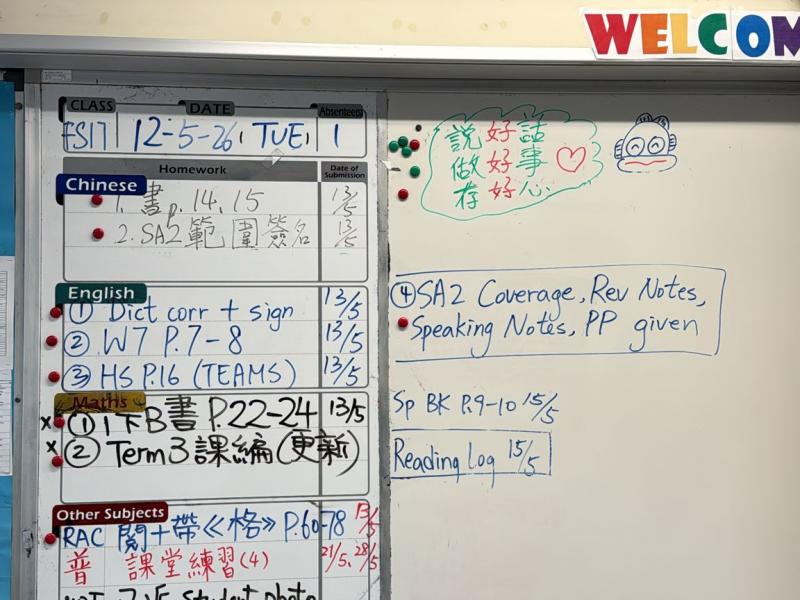 WELCOM
CLASS DATE Absentees
12-5-26, TUE, 1
Homework Date of Submission
Chinese
1. 書 p. 14, 15 13/5
2. SA2 範圍簽名 13/5
English
① Dict corr + sign 13/5
② W7 P.7-8 13/5
③ HS P.16 (TEAMS) 13/5
Maths
x ① 1下B書 P.22-24 13/5
x ② Term 3 課編(更新)
Other Subjects
RAC 閱+帶《格》 P.60-78 13/5
普 課堂練習(4) 21/5、28/5
student photo
說好話
做好事
存好心
④ SA2 Coverage, Rev Notes,
Speaking Notes, PP given
Sp BK P.9-10 15/5
Reading Log 15/5